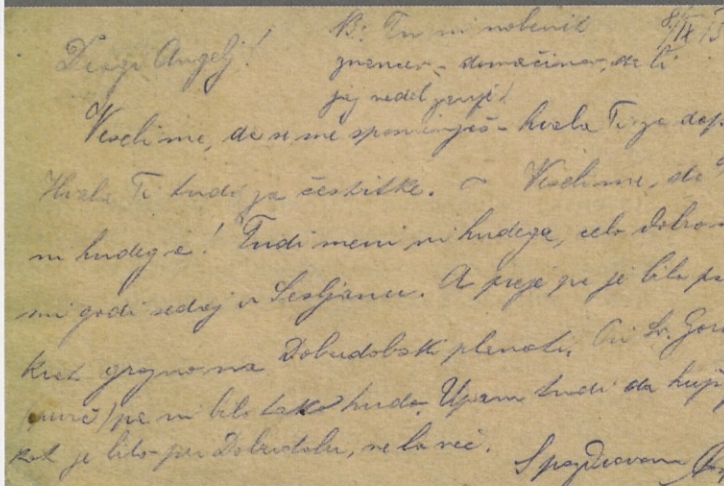 B: Tu ni nobenih
Dragi Angelj!
znancev - domačinov, da bi
Veseli me, da se me spominjaš - hvala Ti za dop
Hvala Ti tudi za čestitke. - Veseli me, da
ni hudega! Tudi meni ni hudega, celo dobro
mi godi sedaj v Sesljanu. A preje pa je bilo
krat grozno na Doberdobski planoti. Pri Sv. Gor
pa ni bilo tako hudo. Upam tudi da hujš
kot je bilo pri Doberdobu, ne bo več.
Spozdravom